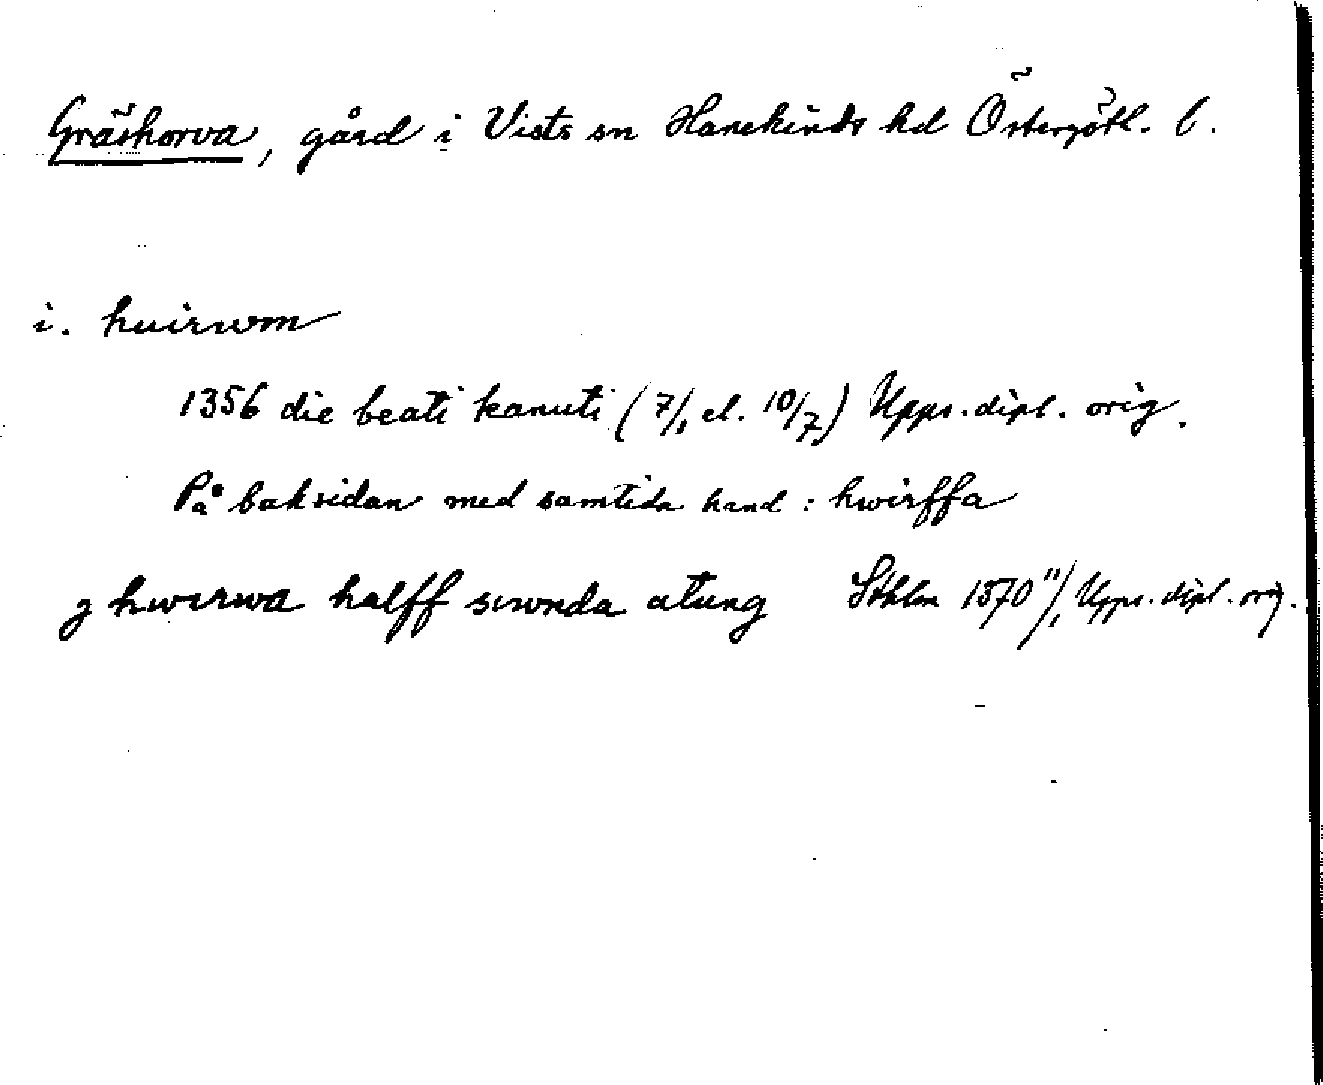 Gräshorva, gård i Vists sn Hanekinds hd Östergötl. l.
i. huirwm
1356 die beati kanuti (7/1 el. 10/7) Upps. dipl. orig.
På baksidan med samtida hand: hwirffa
j hwirwa halff siwnda atung Sthlm 1370 11/1 Upps. dipl. orig.